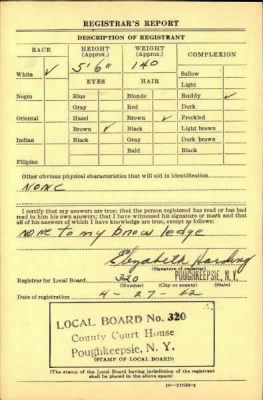 REGISTRAR'S REPORT
DESCRIPTION OF REGISTRANT
RACE HEIGHT (Approx.) WEIGHT (Approx.) COMPLEXION
White ✓ 5'6" 140 Sallow
Light
EYES HAIR
Negro Blue Blonde Ruddy ✓
Gray Red Dark
Oriental Hazel Brown ✓ Freckled
Brown ✓ Black Light brown
Indian Black Gray Dark brown
Bald Black
Filipino
Other obvious physical characteristics that will aid in identification
NONE
I certify that my answers are true; that the person registered has read or has had
read to him his own answers; that I have witnessed his signature or mark and that
all of his answers of which I have knowledge are true, except as follows:
none to my know ledge
Elizabeth Harding
(Signature of registrar)
Registrar for Local Board 320 POUGHKEEPSIE, N. Y.
(Number) (City or county) (State)
Date of registration 4-27-42
LOCAL BOARD No. 320
County Court House
Poughkeepsie, N. Y.
(STAMP OF LOCAL BOARD)
(The stamp of the Local Board having jurisdiction of the registrant
shall be placed in the above space)